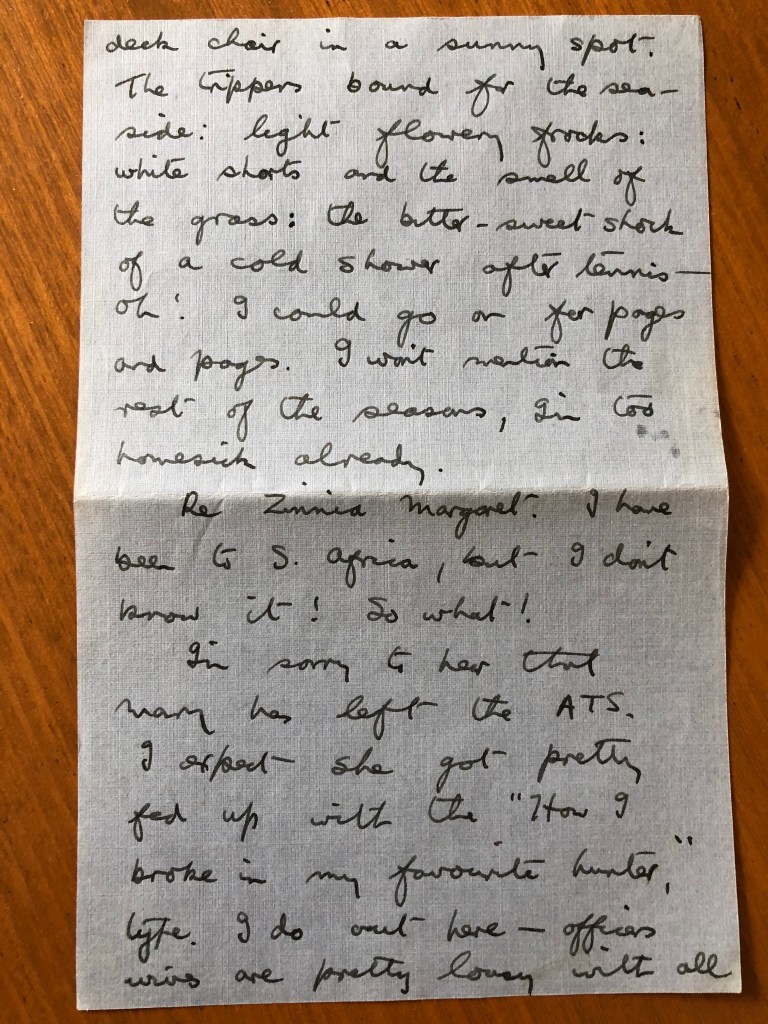 deck chair in a sunny spot.
The trippers bound for the sea-
side: light flowery frocks:
white shorts and the smell of
the grass: the bitter-sweet shock
of a cold shower after tennis —
oh! I could go on for pages
and pages. I won't mention the
rest of the seasons, I'm too
homesick already.
Re Zinnia Margaret. I have
been to S. Africa, but I don't
know it! So what!
I'm sorry to hear that
Mary has left the ATS.
I expect she got pretty
fed up with the "How I
broke in my favourite hunter,"
type. I do out here — officers
wives are pretty lousy with all